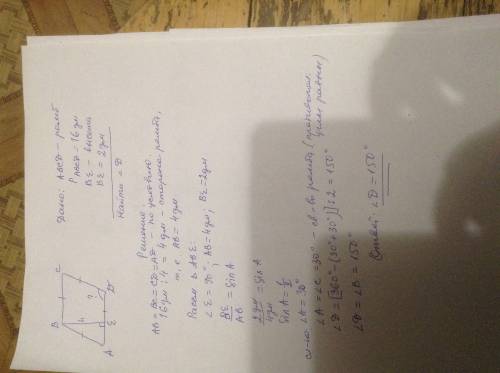 Дано: ABCD - ромб
P ABCD = 16 дм
BE - высота
BE = 2 дм
Найти: ∠D
B
C
A
E
D
4
?
Решение
AB = BC = CD = AD - по условию
16 дм : 4 = 4 дм - сторона ромба,
т.е. AB = 4 дм
Рассм. △ ABE:
∠E = 90°, AB = 4 дм, BE = 2 дм
BE/AB = sin A
2 дм/4 дм = sin A
sin A = 1/2
∠A = 30°
∠A = ∠C = 30° - св-во ромба (противополож. углы равны)
∠D = [360° - (30° + 30°)] : 2 = 150°
∠D = ∠B = 150°
Ответ: ∠D = 150°